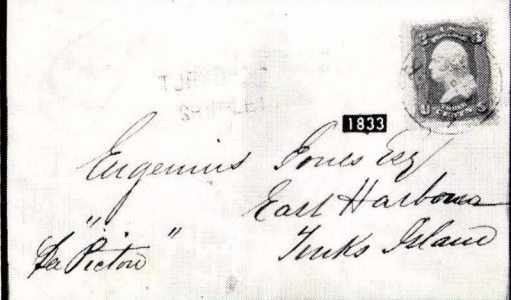 3 3
U S
1833
Eugenius Jones Esq
East Harbour
Turks Island
" "
Pa Picton